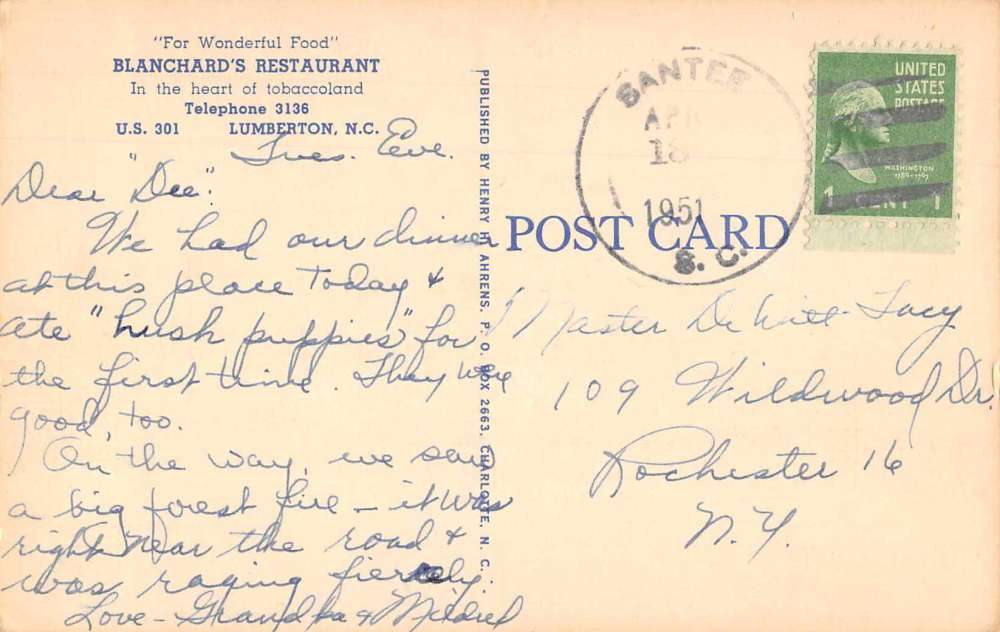 "For Wonderful Food"
BLANCHARD'S RESTAURANT
In the heart of tobaccoland
Telephone 3136
U.S. 301 LUMBERTON, N.C.
Tues. Eve.
Dear "Dee":
We had our dinner
at this place today &
ate "hush puppies" for
the first time. They were
good, too.
On the way, we saw
a big forest fire – it was
right near the road &
was raging fiercely.
Love – Grandpa & Mildred
PUBLISHED BY HENRY H. AHRENS, P. O. BOX 2663, CHARLOTTE, N. C.
POST CARD
SANTEE
APR
18
1951
S. C.
UNITED
STATES
POSTAGE
WASHINGTON
1789-1797
1 CENT 1
Master DeWitt Lucy
109 Wildwood Dr.
Rochester 16
N.Y.